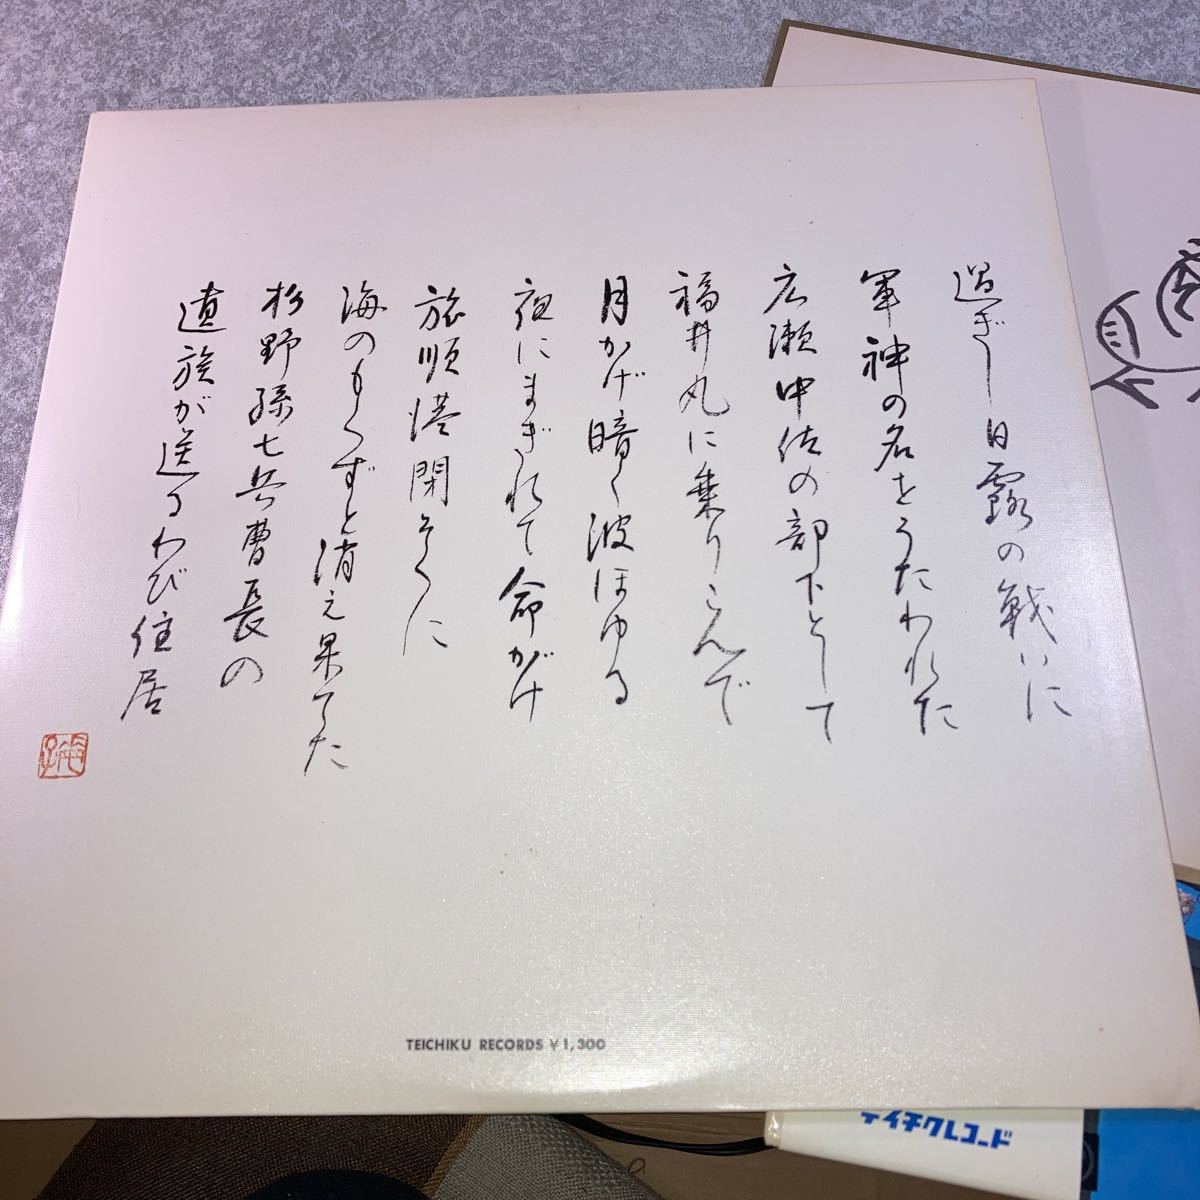 過ぎし日露の戦いに
軍神の名をうたわれた
広瀬中佐の部下として
福井丸に乗りこんで
月かげ暗く波ほゆる
夜にまぎれて命がけ
旅順港閉そくに
海のもくずと消え果てた
杉野孫七兵曹長の
遺族が送るわび住居
TEICHIKU RECORDS ¥1,300
テイチクレコード